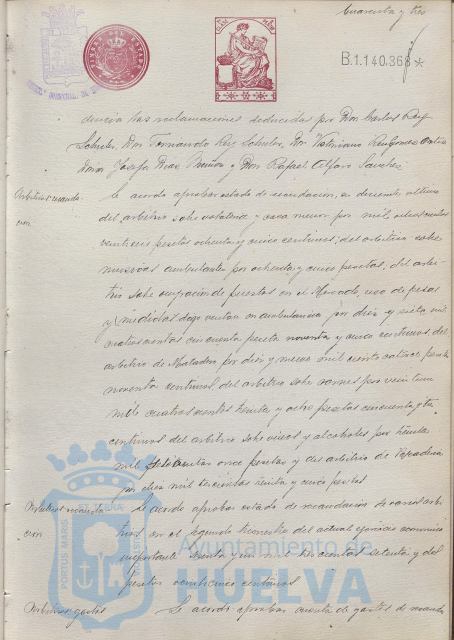 Cuarenta y tres
B.1.140.368 *
dencia las reclamaciones deducidas por Don Carlos Rey
Don Fernando Rey Don Valeriano
Doña Josefa Diaz Muñoz y Don Rafael Alfaro Sanchez.
Arbitrios recauda-
cion
Se acordó aprobar estado de recaudacion, en decenio ultimo
del arbitrio sobre volateria y caza menor por mil ochocientas
veinticinco pesetas ochenta y cinco centimos; del arbitrio sobre
ambulantes por ochenta y cinco pesetas; del arbi-
trio sobre ocupacion de puestos en el Mercado, uso de pesas
y medidas venta en ambulancia por diez y siete mil
cuatrocientas cincuenta peseta noventa y cinco centimos, del
arbitrio de Matadero por diez y nueve mil ciento catorce pesetas
noventa centimos, del arbitrio sobre carnes por veintiun
mil cuatrocientas treinta y ocho pesetas cincuenta y tres
centimos del arbitrio sobre vinos y alcoholes por treinta
mil once pesetas y del arbitrio de
por mil trescientas treinta y cinco pesetas
Arbitrios recauda-
cion
Se acordó aprobar estado de recaudacion de varios arbi-
trios en el segundo trimestre del actual ejercicio economico
importante treinta y mil trescientas setenta y dos
pesetas veinticinco centimos
Arbitrios gastos
Se acordó aprobar cuenta de gastos de recauda
Ayuntamiento de
HUELVA
PORTUS MARIS